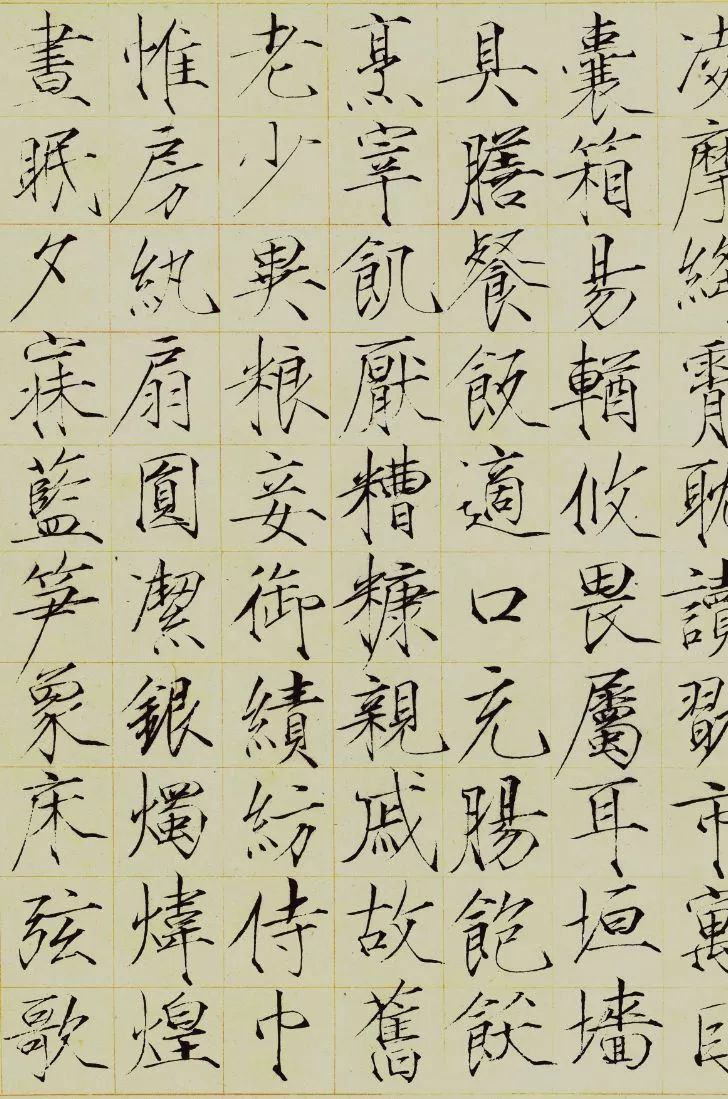 凌摩絳霄耽讀翫市寓目
囊箱易輶攸畏屬耳垣墻
具膳餐飯適口充腸飽飫
烹宰飢厭糟糠親戚故舊
老少異粮妾御績紡侍巾
惟房紈扇圓潔銀燭煒煌
晝眠夕寐藍笋象床弦歌